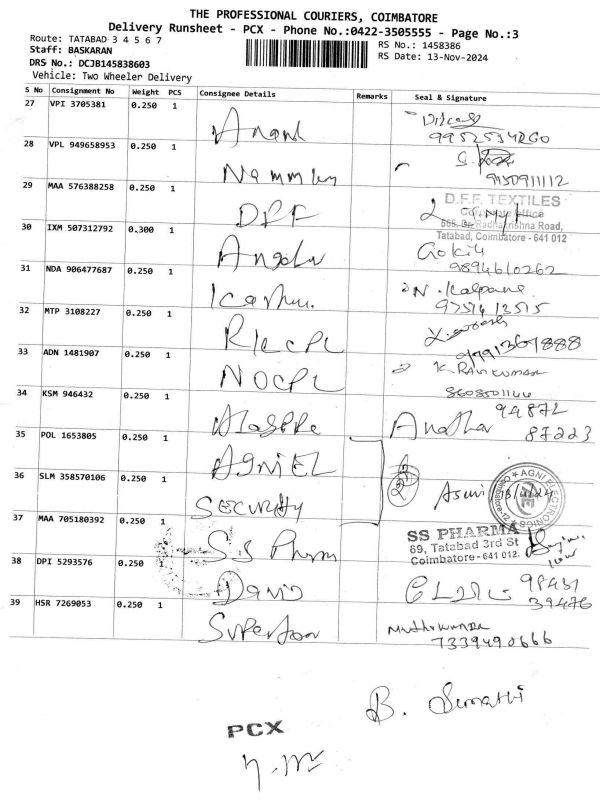 THE PROFESSIONAL COURIERS, COIMBATORE
Delivery Runsheet - PCX - Phone No.:0422-3505555 - Page No.:3
Route: TATABAD 3 4 5 6 7
Staff: BASKARAN
RS No.: 1458386
DRS No.: DCJB145838603
RS Date: 13-Nov-2024
Vehicle: Two Wheeler Delivery
S No Consignment No Weight PCS Consignee Details Remarks Seal & Signature
27 VPI 3705381 0.250 1 Anand
28 VPL 949658953 0.250 1
9150911112
29 MAA 576388258 0.250 1 DFF
D.F.F. TEXTILES
Office
Radhakrishna Road,
Tatabad, Coimbatore - 641 012
30 IXM 507312792 0.300 1
9894610262
31 NDA 906477687 0.250 1 N. Kalpana
9751413515
32 MTP 3108227 0.250 1
33 ADN 1481907 0.250 1 NOCPL K. RAVIKUMAR
8608501144
34 KSM 946432 0.250 1
94872
87223
35 POL 1653805 0.250 1 AGNIEL
36 SLM 358570106 0.250 1 SECURITY
AGNI ELECTRONICS
37 MAA 705180392 0.250 1 S.S Pharm
SS PHARMA
69, Tatabad 3rd St
Coimbatore - 641 012.
38 DPI 5293576 0.250 1 David
98431
39476
39 HSR 7269053 0.250 1
7339490666
B. Sumathi
PCX